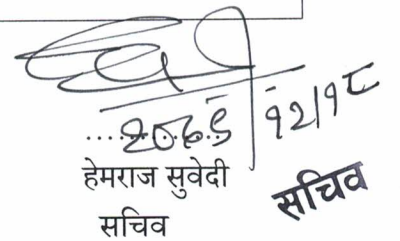 २०७९/१२/१८
हेमराज सुवेदी
सचिव
सचिव